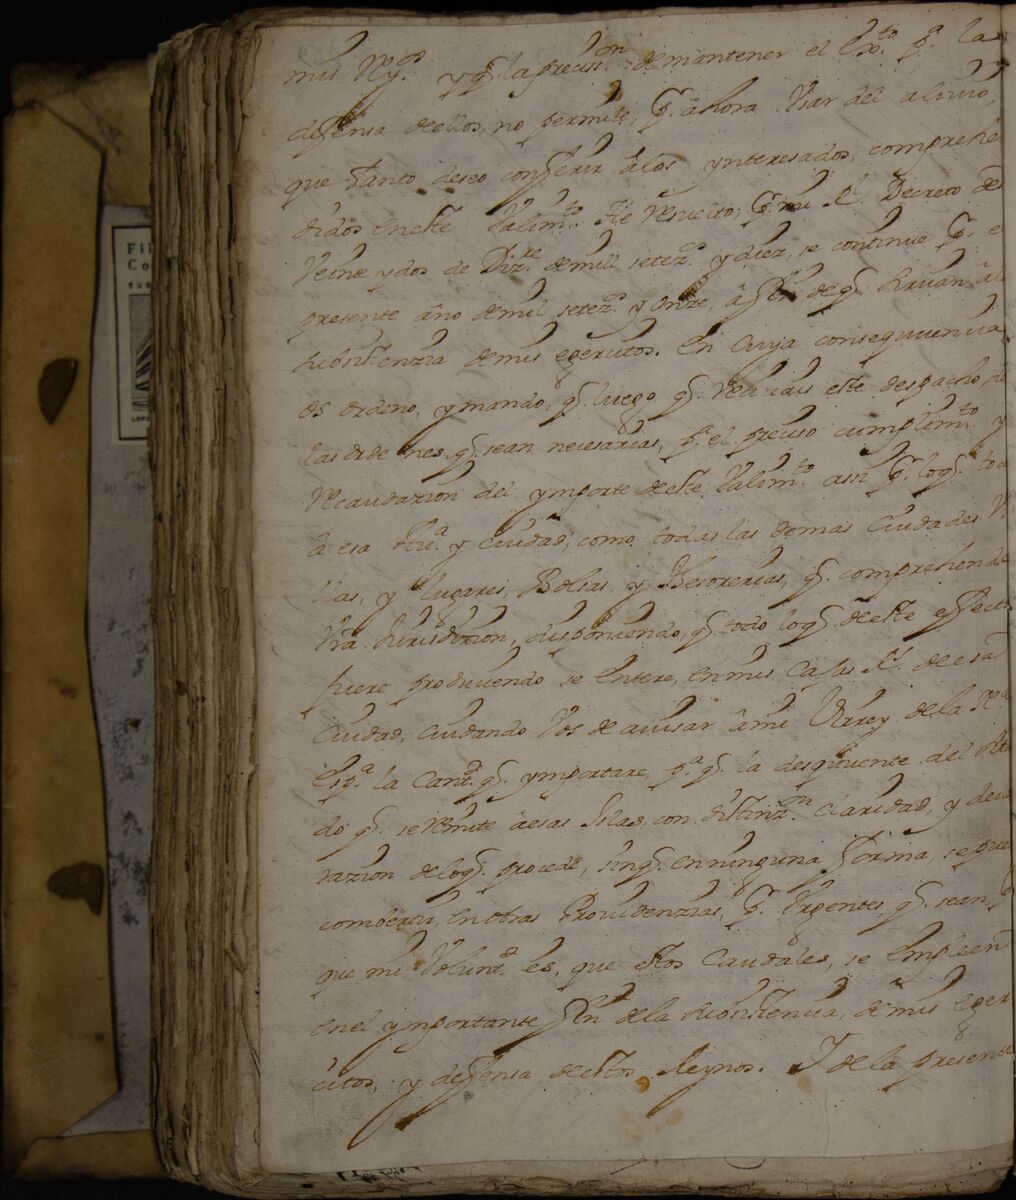 mis Rey.os y q.e la precis.on de mantener el Ex.to p.a la
defensa de ellos, no permite, p.r ahora Usar del alivio,
que tanto deseo conferir â los ynteresados, comprehe
didos en este Valim.to He resuelto, p.r mi R.l Decreto de
Veinte y dos de Diz.re de mill setez.os y diez, se continue p.r e
presente año de mil setez.os y onze, â fin de q.e sirvan âl
subsistenzia de mis egercitos. En cuya consequencia
os ordeno, y mando, q.e luego q.e recivais este despacho, de
las ordenes q.e sean necesarias, p.a el preciso cumplim.to y
recaudazion del ymporte de este Valim.to assi p.r lo q.e toca
â esa Prov.a y Ciudad, como todas las demas Ciudades Vi
llas, y lugares, Bolsas, y Thesorerias, q.e comprehende
Vra. Jurisdizion, disponiendo, q.e todo lo q.e de este efecto
fuere produciendo se entere, en mis Cajas R.s de esa
Ciudad, cuidando Vos de avisar â mi Virrey de la N.a
Esp.a la cant.d q.e ymportare, p.a q.e la desquente del situa
do q.e se remite â esas Islas, con distinz.on claridad, y decla
razion de lo q.e procede, sin q.e en ninguna forma, se pue
combertir, en otras Providenzias, p.r Urgentes, q.e sean, p
que mi Volunt.d es, que estos Caudales, se empleen
en el ymportante fin de la subsistencia, de mis eger
citos, y defensa de estos Reynos. Y de la presente